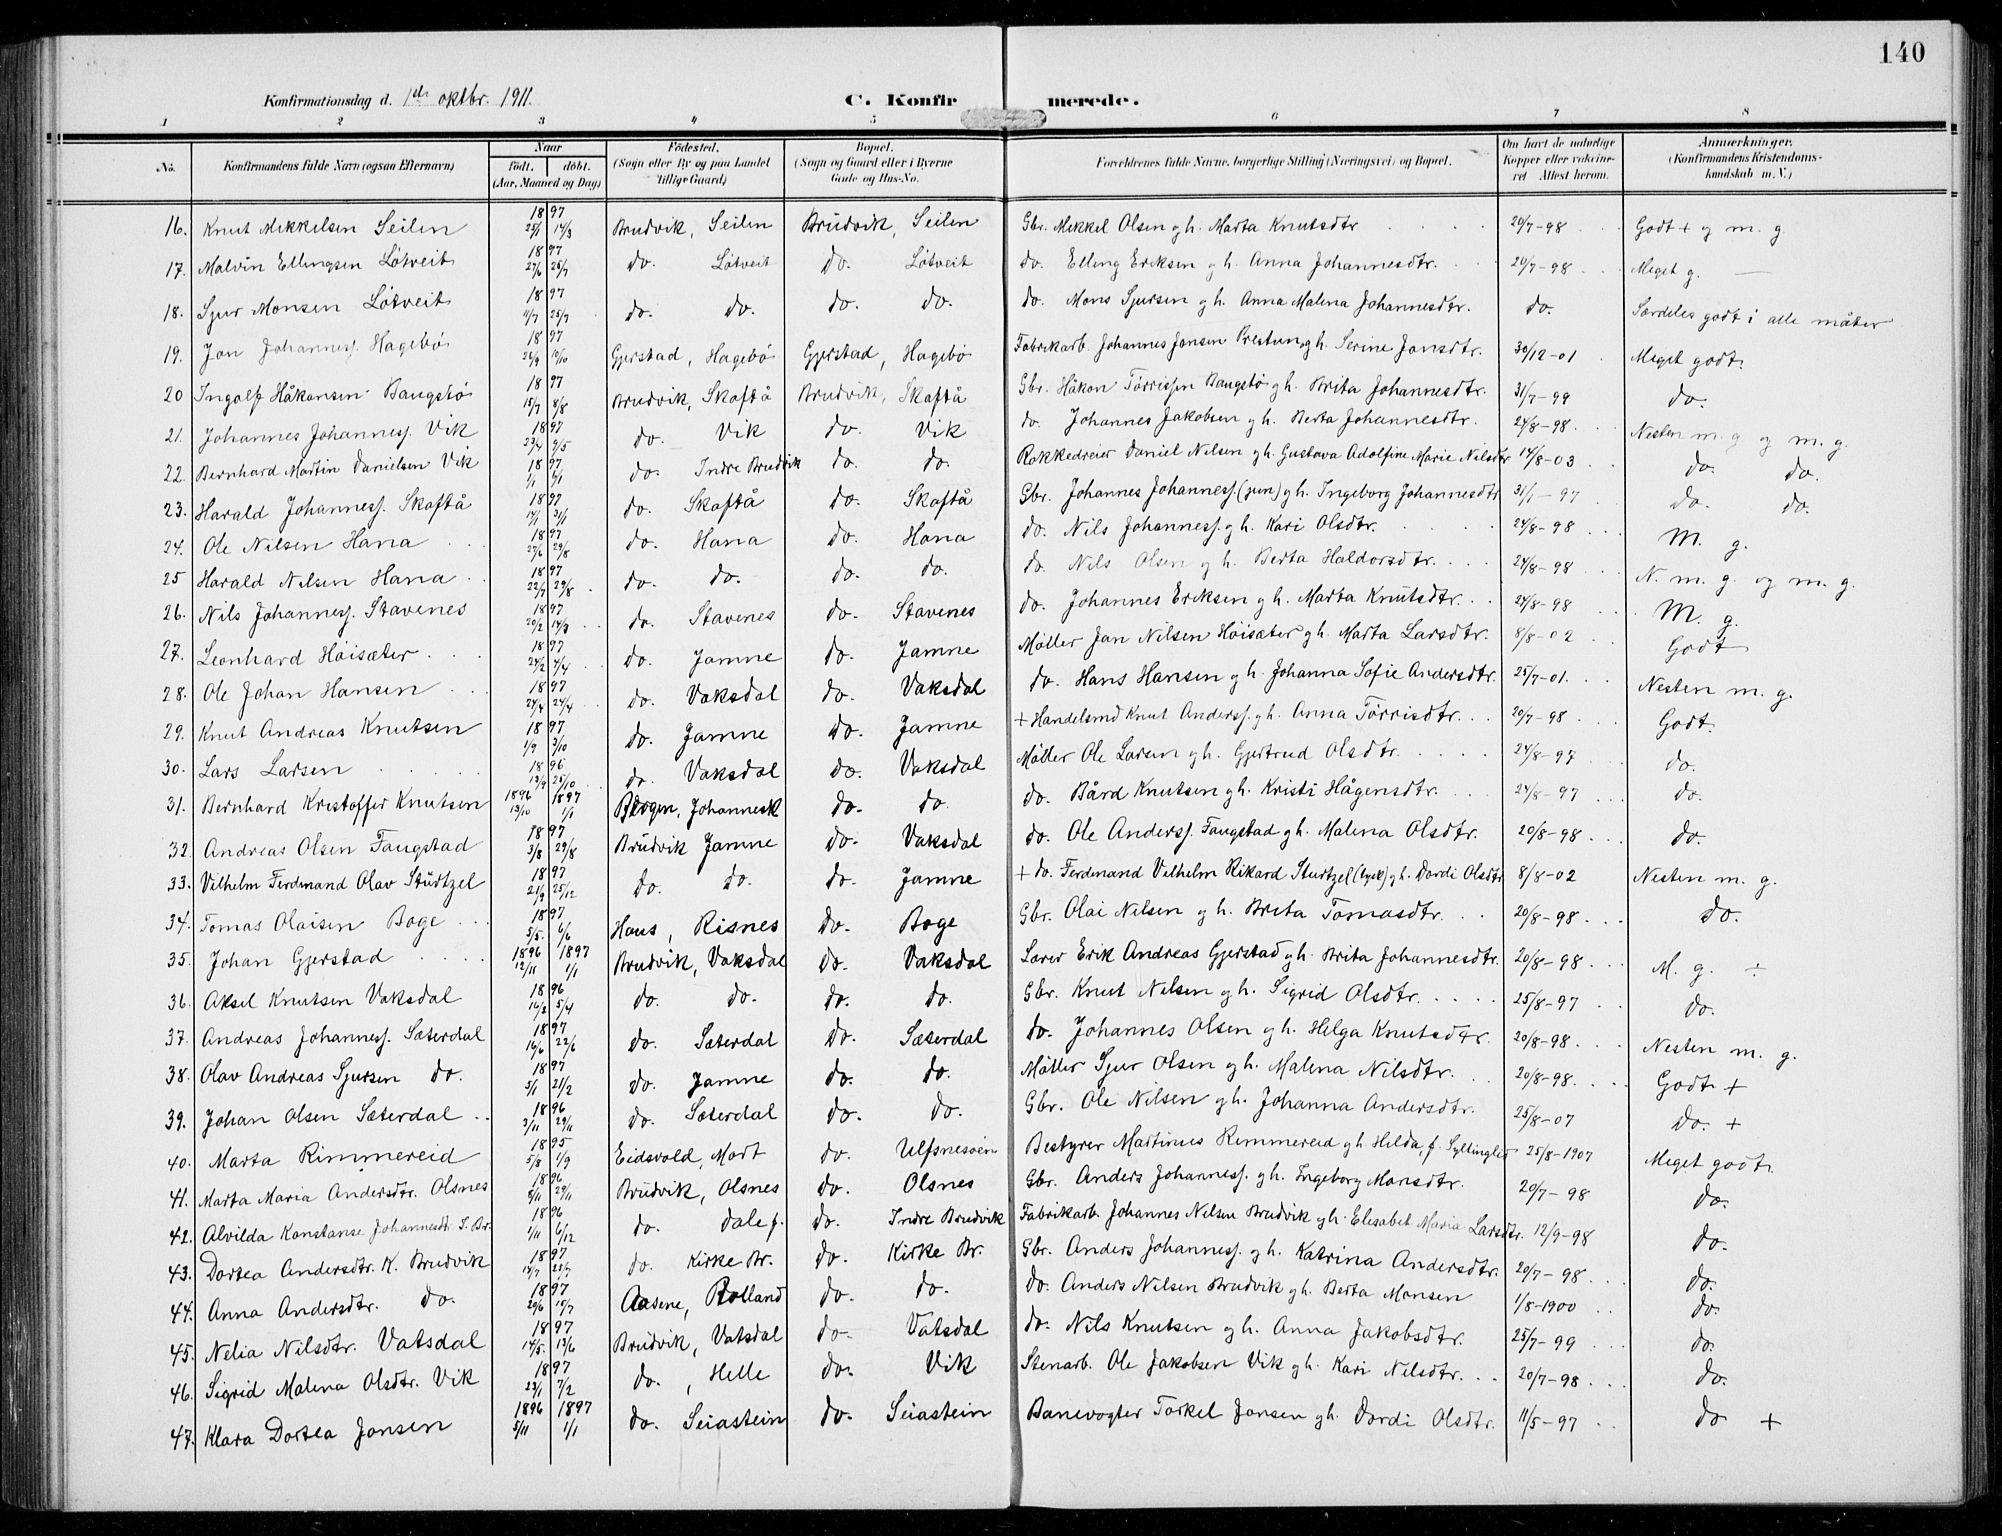 140
Konfirmationsdag d. 1ste oktbr. 1911.
C. Konfirmerede.
1 2 3 4 5 6 7 8
No. Konfirmandens fulde Navn (ogsaa Efternavn) Naar født. døbt. (Aar, Maaned og Dag) Fødested. (Sogn eller By og paa Landet tillige Gaard) Bopæl. (Sogn og Gaard eller i Byerne Gade og Hus-No. Forældrenes fulde Navne, borgerlige Stilling (Næringsvei) og Bopæl. Om havt de naturlige Kopper eller vakcineret Attest herom. Anmærkninger. (Konfirmandens Kristendomskundskab m. V.)
16. Knut Mikkelsen Seilen 1897 25/1 14/3 Brudvik, Seilen Brudvik, Seilen Gbr. Mikkel Olsen gh. Marta Knutsdtr 20/7-98 Godt + og m. g.
17. Malvin Ellingsen Løtveit 1897 27/6 25/7 do. Løtveit do. Løtveit do. Elling Eriksen gh. Anna Johannesdtr. 20/7-98 Meget g.
18. Sjur Monsen Løtveit 1897 11/7 25/7 do. do. do. do. do. Mons Sjursen gh. Anna Malena Johannesdtr. do. Særdeles godt i alle måter
19. Jon Johannesf. Hagebø 1897 26/9 10/10 Gjerstad, Hagebø Gjerstad, Hagebø Fabrikarb. Johannes Jonsen Prestun gh. Serine Jonsdtr. 30/12-01 Meget godt
20 Ingolf Håkonsen Baugstø 1897 15/7 8/8 Brudvik, Skoftå Brudvik, Skoftå Gbr. Håkon Tørrissen Baugstø gh. Brita Johannesdtr. 31/7-99 do.
21. Johannes Johannesf. Vik 1897 23/4 9/5 do. Vik do. Vik do. Johannes Jakobsen gh. Berta Johannesdtr. 24/8-98 Nesten m. g og m. g.
22. Bernhard Martin Danielsen Vik 1897 1/1 do. Indre Brudvik do. do. Rokkedreier Daniel Nilsen gh. Gustava Adolfine Marie Nilsdtr 14/8-03 do. do.
23. Harald Johannesf. Skoftå 1897 17/1 31/1 do. Skoftå do. Skoftå Gbr. Johannes Johannesf. (jun) gh. Ingeborg Johannesdtr 31/1-97 do. do.
24. Ole Nilsen Hana 1897 27/6 29/8 do. Hana do. Hana do. Nils Johannesf. gh. Kari Olsdtr. 24/8-98 M. g.
25 Harald Nilsen Hana 1897 22/7 29/8 do. do. do. do. do. Nils Olsen gh. Berta Haldorsdtr. 24/8-98 N. m. g. og m. g.
26. Nils Johannesf. Stavenes 1897 20/2 14/3 do. Stavenes do. Stavenes do. Johannes Eriksen gh. Marta Knutsdtr. 24/8-98 M. g.
27. Leonhard Høisæter 1897 24/2 4/4 do. Jamne do. Jamne Møller Jan Nilsen Høisæter gh. Marta Larsdtr. 8/8-02 Godt
28. Ole Johan Hansen 1897 24/4 do. Vaksdal do. Vaksdal do. Hans Hansen gh. Johanna Sofie Andersdtr. 25/7-01. Nesten m. g.
29. Knut Andreas Knutsen 1897 1/9 3/10 do. Jamne do. Jamne + Handelsmd Knut Andersf. gh. Anna Tørrisdtr. 20/7-98 Godt.
30. Lars Larsen 1896 13/9 25/10 do. Vaksdal do. Vaksdal Møller Ole Larsen gh. Gjertrud Olsdtr. 24/8-97 do.
31. Bernhard Kristoffer Knutsen 1896 13/10 1897 1/1 Bergen, Johannesk do. do. do. Bård Knutsen gh. Kristi Hågensdtr. 24/8-97 do.
32. Andreas Olsen Faugstad 1897 3/8 29/8 Brudvik Jamne do. Vaksdal do. Ole Andersf. Faugstad gh. Malena Olsdtr. 20/8-98 do.
33. Vilhelm Ferdinand Olav Stürtzel 1897 21/9 25/12 do. do. do. Jamne + do. Ferdinand Vilhelm Rikard Sturtzel (tysk) gh. Dordi Olsdtr 8/8-02 Nesten m. g.
34. Tomas Olaisen Boge 1897 5/5. 6/6 Haus, Risnes do. Boge Gbr. Olai Nilsen gh. Brita Tomasdtr. 20/8-98 do.
35. Johan Gjerstad 1896 12/11 1897 1/1 Brudvik, Vaksdal do. Vaksdal Lærer Erik Andreas Gjerstad gh. Brita Johannesdtr. 20/8-98 M. g. ÷
36. Aksel Knutsen Vaksdal 1896 16/3 5/4 do. do. do. do. Gbr. Knut Nilsen gh. Sigrid Olsdtr. 25/8-97 do.
37. Andreas Johannesf. Sæterdal 1897 16/6 22/6 do. Sæterdal do. Sæterdal do. Johannes Olsen gh. Helga Knutsdtr. 20/8-98. Nesten m. g.
38. Olav Andreas Sjursen do. 1897 5/1 21/2 do. Jamne do. do. Møller Sjur Olsen gh. Malena Nilsdtr. 20/8-98. Godt +
39. Johan Olsen Sæterdal 1896 3/11 29/11 do. Sæterdal do. do. Gbr. Ole Nilsen gh. Johanna Andersdtr. 25/8-07 do. +
40. Marta Rimmereid 1895 5/8 1/9 Eidsvold, Mort do. Ulfsnesøen Bestyrer Martinus Rimmereid gh. Hilda, f. Syllingled 25/8-1907 Meget godt
41. Marta Maria Andersdtr. Olsnes 1896 8/11 29/11 Brudvik, Olsnes do. Olsnes Gbr. Anders Johannesf. gh. Ingeborg Monsdtr. 20/7-98 do.
42. Alvilda Konstanse Johannesdtr I. Br. 1896 1/11 6/12 do. Dale f. do. Indre Brudvik Fabrikarb. Johannes Nilsen Brudvik gh. Elisabet Maria Larsdtr. 12/9-98 do.
43. Dortea Andersdtr. K. Brudvik 1897 25/7 do. Kirke Br. do. Kirke Br. Gbr. Anders Johannesf. gh. Katrina Andersdtr. 20/7-98 do.
44. Anna Andersdtr. do. 1897 20/6 18/7 Aasene, Rolland do. do. do. Anders Nilsen Brudvik gh. Berta Monsen 1/8-1900 do.
45. Nelia Nilsdtr. Vatsdal 1897 14/5. 13/6 Brudvik, Vatsdal do. Vatsdal do. Nils Knutsen gh. Anna Jakobsdtr. 25/7-99 do.
46. Sigrid Malena Olsdtr. Vik 1897 23/1 7/2 do., Helle do. Vik Stenarb. Ole Jakobsen Vik gh. Kari Nilsdtr. 20/7-98 do.
47. Klara Dortea Jonsen 1896 5/11 1897 1/1 do. Seiastein do. Seiastein Banevogter Torkel Jonsen gh. Dordi Olsdtr. 11/5-97 do +